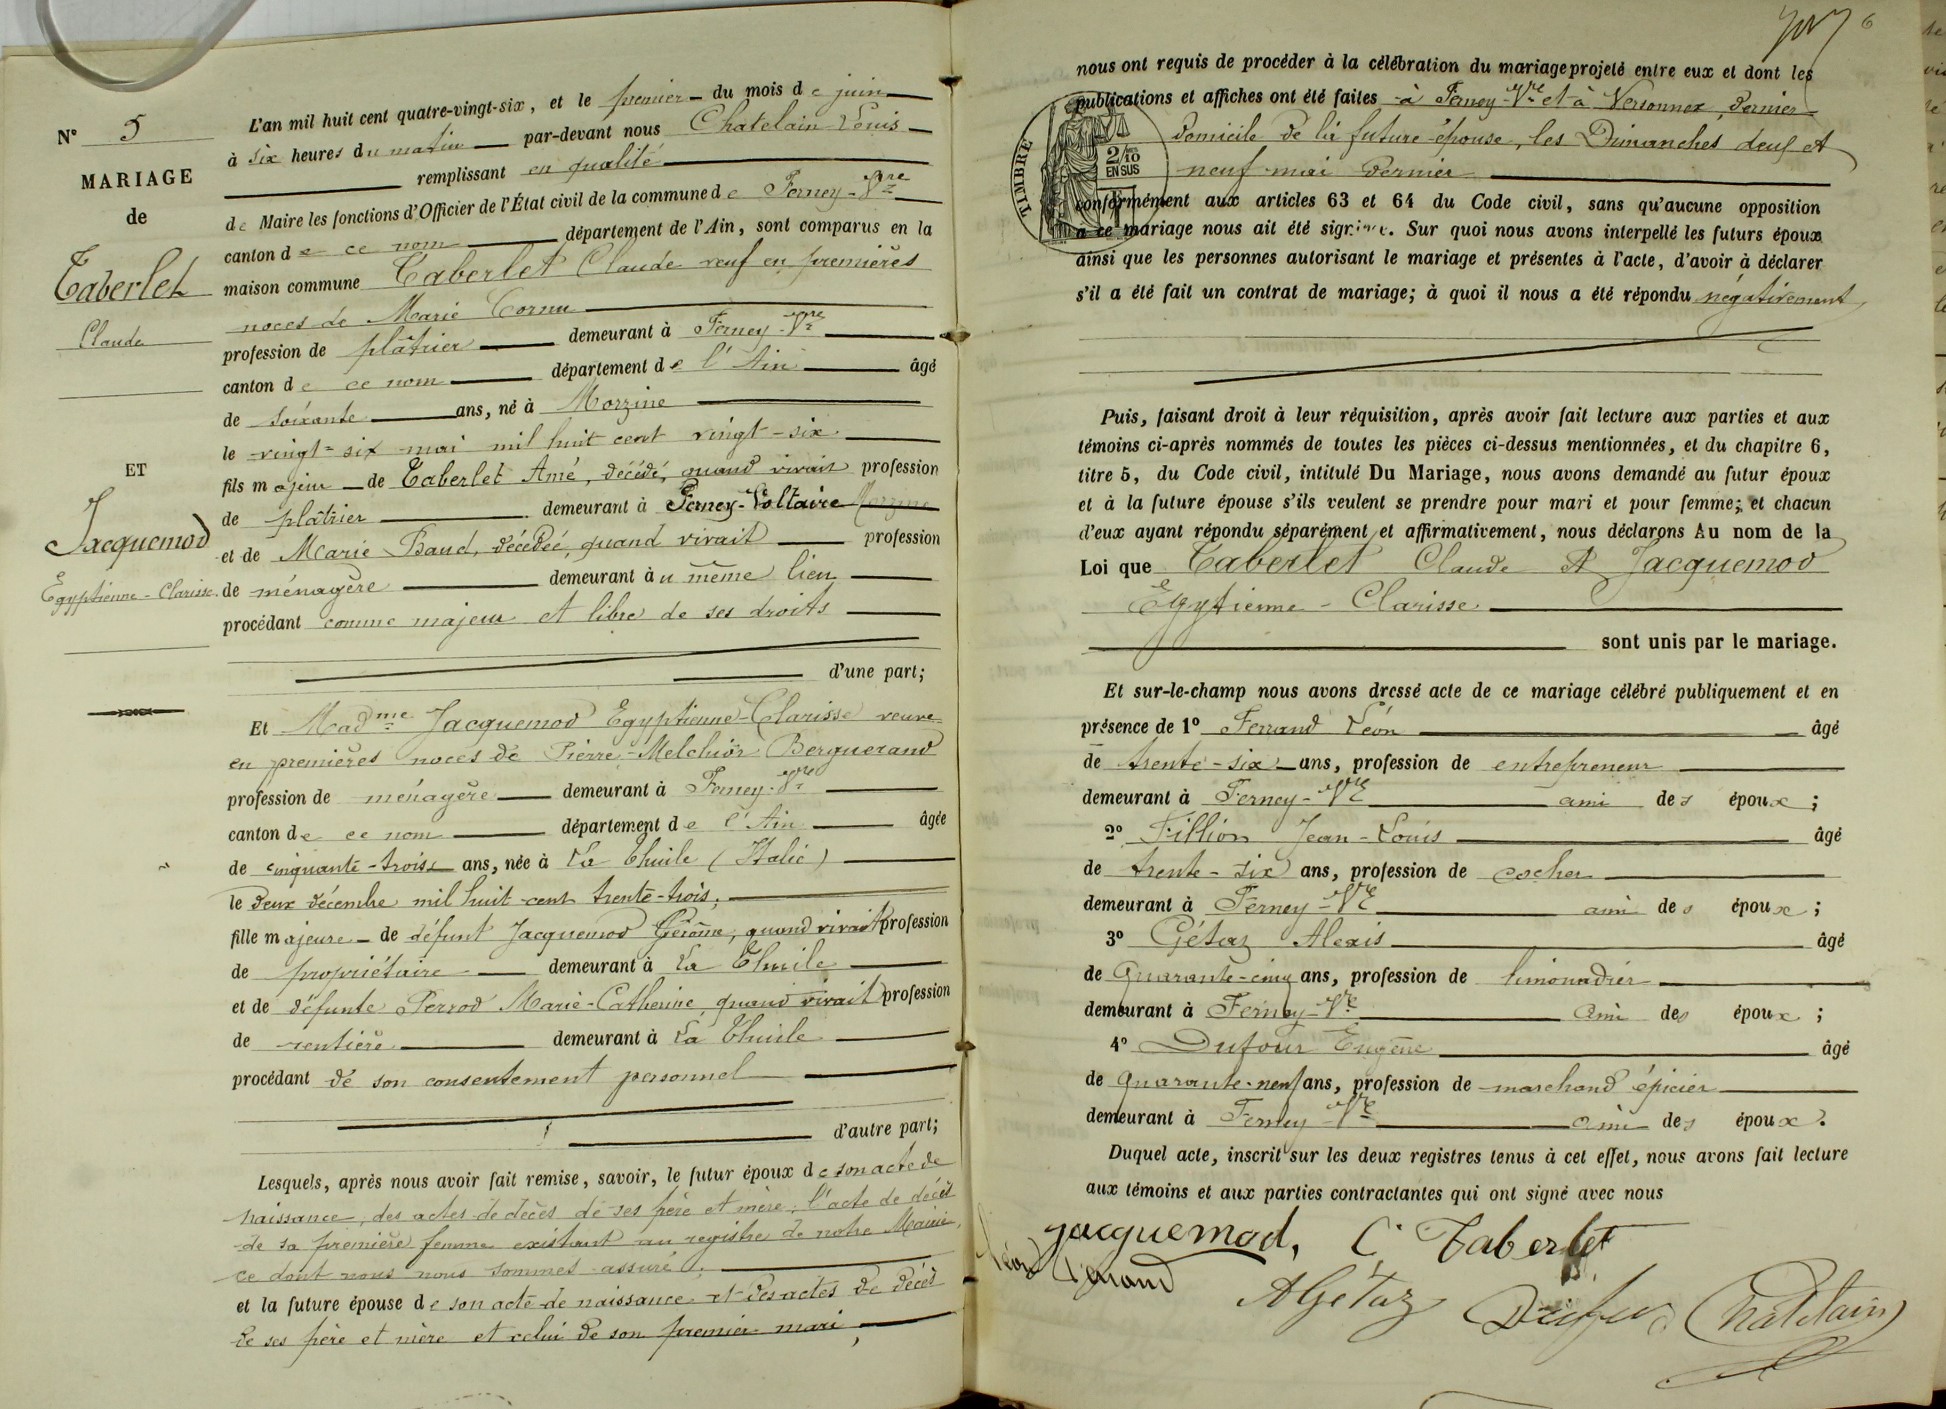 N° 5
MARIAGE
de
Taberlet
Claude
ET
Jacquemod
Egyptienne-Clarisse.
L'an mil huit cent quatre-vingt-six, et le premier du mois de juin
à six heures du matin par-devant nous Chatelain Louis
remplissant en qualité
de Maire les fonctions d'Officier de l'État civil de la commune de Ferney-Vre
canton de ce nom département de l'Ain, sont comparus en la
maison commune Taberlet Claude veuf en premières
noces de Marie Cornu
profession de plâtrier demeurant à Ferney-Vre
canton de ce nom département de l'Ain âgé
de soixante ans, né à Morzine
le vingt-six mai mil huit cent vingt-six
fils majeur de Taberlet Amé, décédé, quand vivait profession
de plâtrier demeurant à Ferney-Voltaire Morzine
et de Marie Baud, décédée, quand vivait profession
de ménagère demeurant au même lieu
procédant comme majeur et libre de ses droits
d'une part;
Et Madme Jacquemod Egyptienne-Clarisse veuve
en premières noces de Pierre-Melchior Berguerand
profession de ménagère demeurant à Ferney-Vre
canton de ce nom département de l'Ain âgée
de cinquante-trois ans, née à La Thuile (Italie)
le deux décembre mil huit cent trente-trois,
fille majeure de défunt Jacquemod Gérôme, quand vivait profession
de propriétaire demeurant à La Thuile
et de défunte Perrod Marie-Catherine, quand vivait profession
de rentière demeurant à La Thuile
procédant de son consentement personnel
d'autre part;
Lesquels, après nous avoir fait remise, savoir, le futur époux de son acte de
naissance, des actes de décès de ses père et mère, l'acte de décès
de sa première femme existant au registre de notre Mairie,
ce dont nous nous sommes assuré;
et la future épouse de son acte de naissance et des actes de décès
de ses père et mère et celui de son premier mari,
6
nous ont requis de procéder à la célébration du mariage projeté entre eux et dont les
publications et affiches ont été faites à Ferney-Vre et à Versonnex, dernier
domicile de la future épouse, les Dimanches deux et
neuf mai dernier
conformément aux articles 63 et 64 du Code civil, sans qu'aucune opposition
à ce mariage nous ait été signifiée. Sur quoi nous avons interpellé les futurs époux
ainsi que les personnes autorisant le mariage et présentes à l'acte, d'avoir à déclarer
s'il a été fait un contrat de mariage; à quoi il nous a été répondu négativement
TIMBRE
2/10
EN SUS
Puis, faisant droit à leur réquisition, après avoir fait lecture aux parties et aux
témoins ci-après nommés de toutes les pièces ci-dessus mentionnées, et du chapitre 6,
titre 5, du Code civil, intitulé Du Mariage, nous avons demandé au futur époux
et à la future épouse s'ils veulent se prendre pour mari et pour femme; et chacun
d'eux ayant répondu séparément et affirmativement, nous déclarons Au nom de la
Loi que Taberlet Claude et Jacquemod
Egytienne-Clarisse
sont unis par le mariage.
Et sur-le-champ nous avons dressé acte de ce mariage célébré publiquement et en
présence de 1° Ferrand Léon âgé
de trente-six ans, profession de entrepreneur
demeurant à Ferney-Vre ami des époux;
2° Fillion Jean-Louis âgé
de trente-six ans, profession de cocher
demeurant à Ferney-Vre ami des époux;
3° Gétaz Alexis âgé
de Quarante-cinq ans, profession de limonadier
demeurant à Ferney-Vre ami des époux;
4° Dufour Eugène âgé
de Quarante-neuf ans, profession de marchand épicier
demeurant à Ferney-Vre ami des époux.
Duquel acte, inscrit sur les deux registres tenus à cet effet, nous avons fait lecture
aux témoins et aux parties contractantes qui ont signé avec nous
Jacquemod, C. Taberlet
Léon Ferrand
A Gétaz Dufour Chatelain